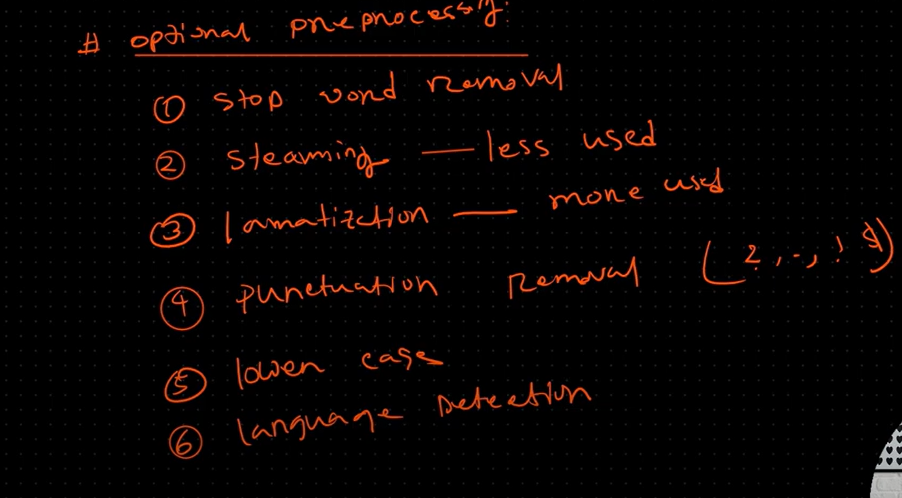 # optional preprocessing:
① stop word removal
② steaming — less used
③ lamatization — more used
④ punctuation removal (?, -, ! $)
⑤ lower case
⑥ language Detection